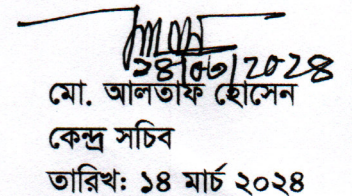 ১৪/০৩/২০২৪
মো. আলতাফ হোসেন
কেন্দ্র সচিব
তারিখঃ ১৪ মার্চ ২০২৪